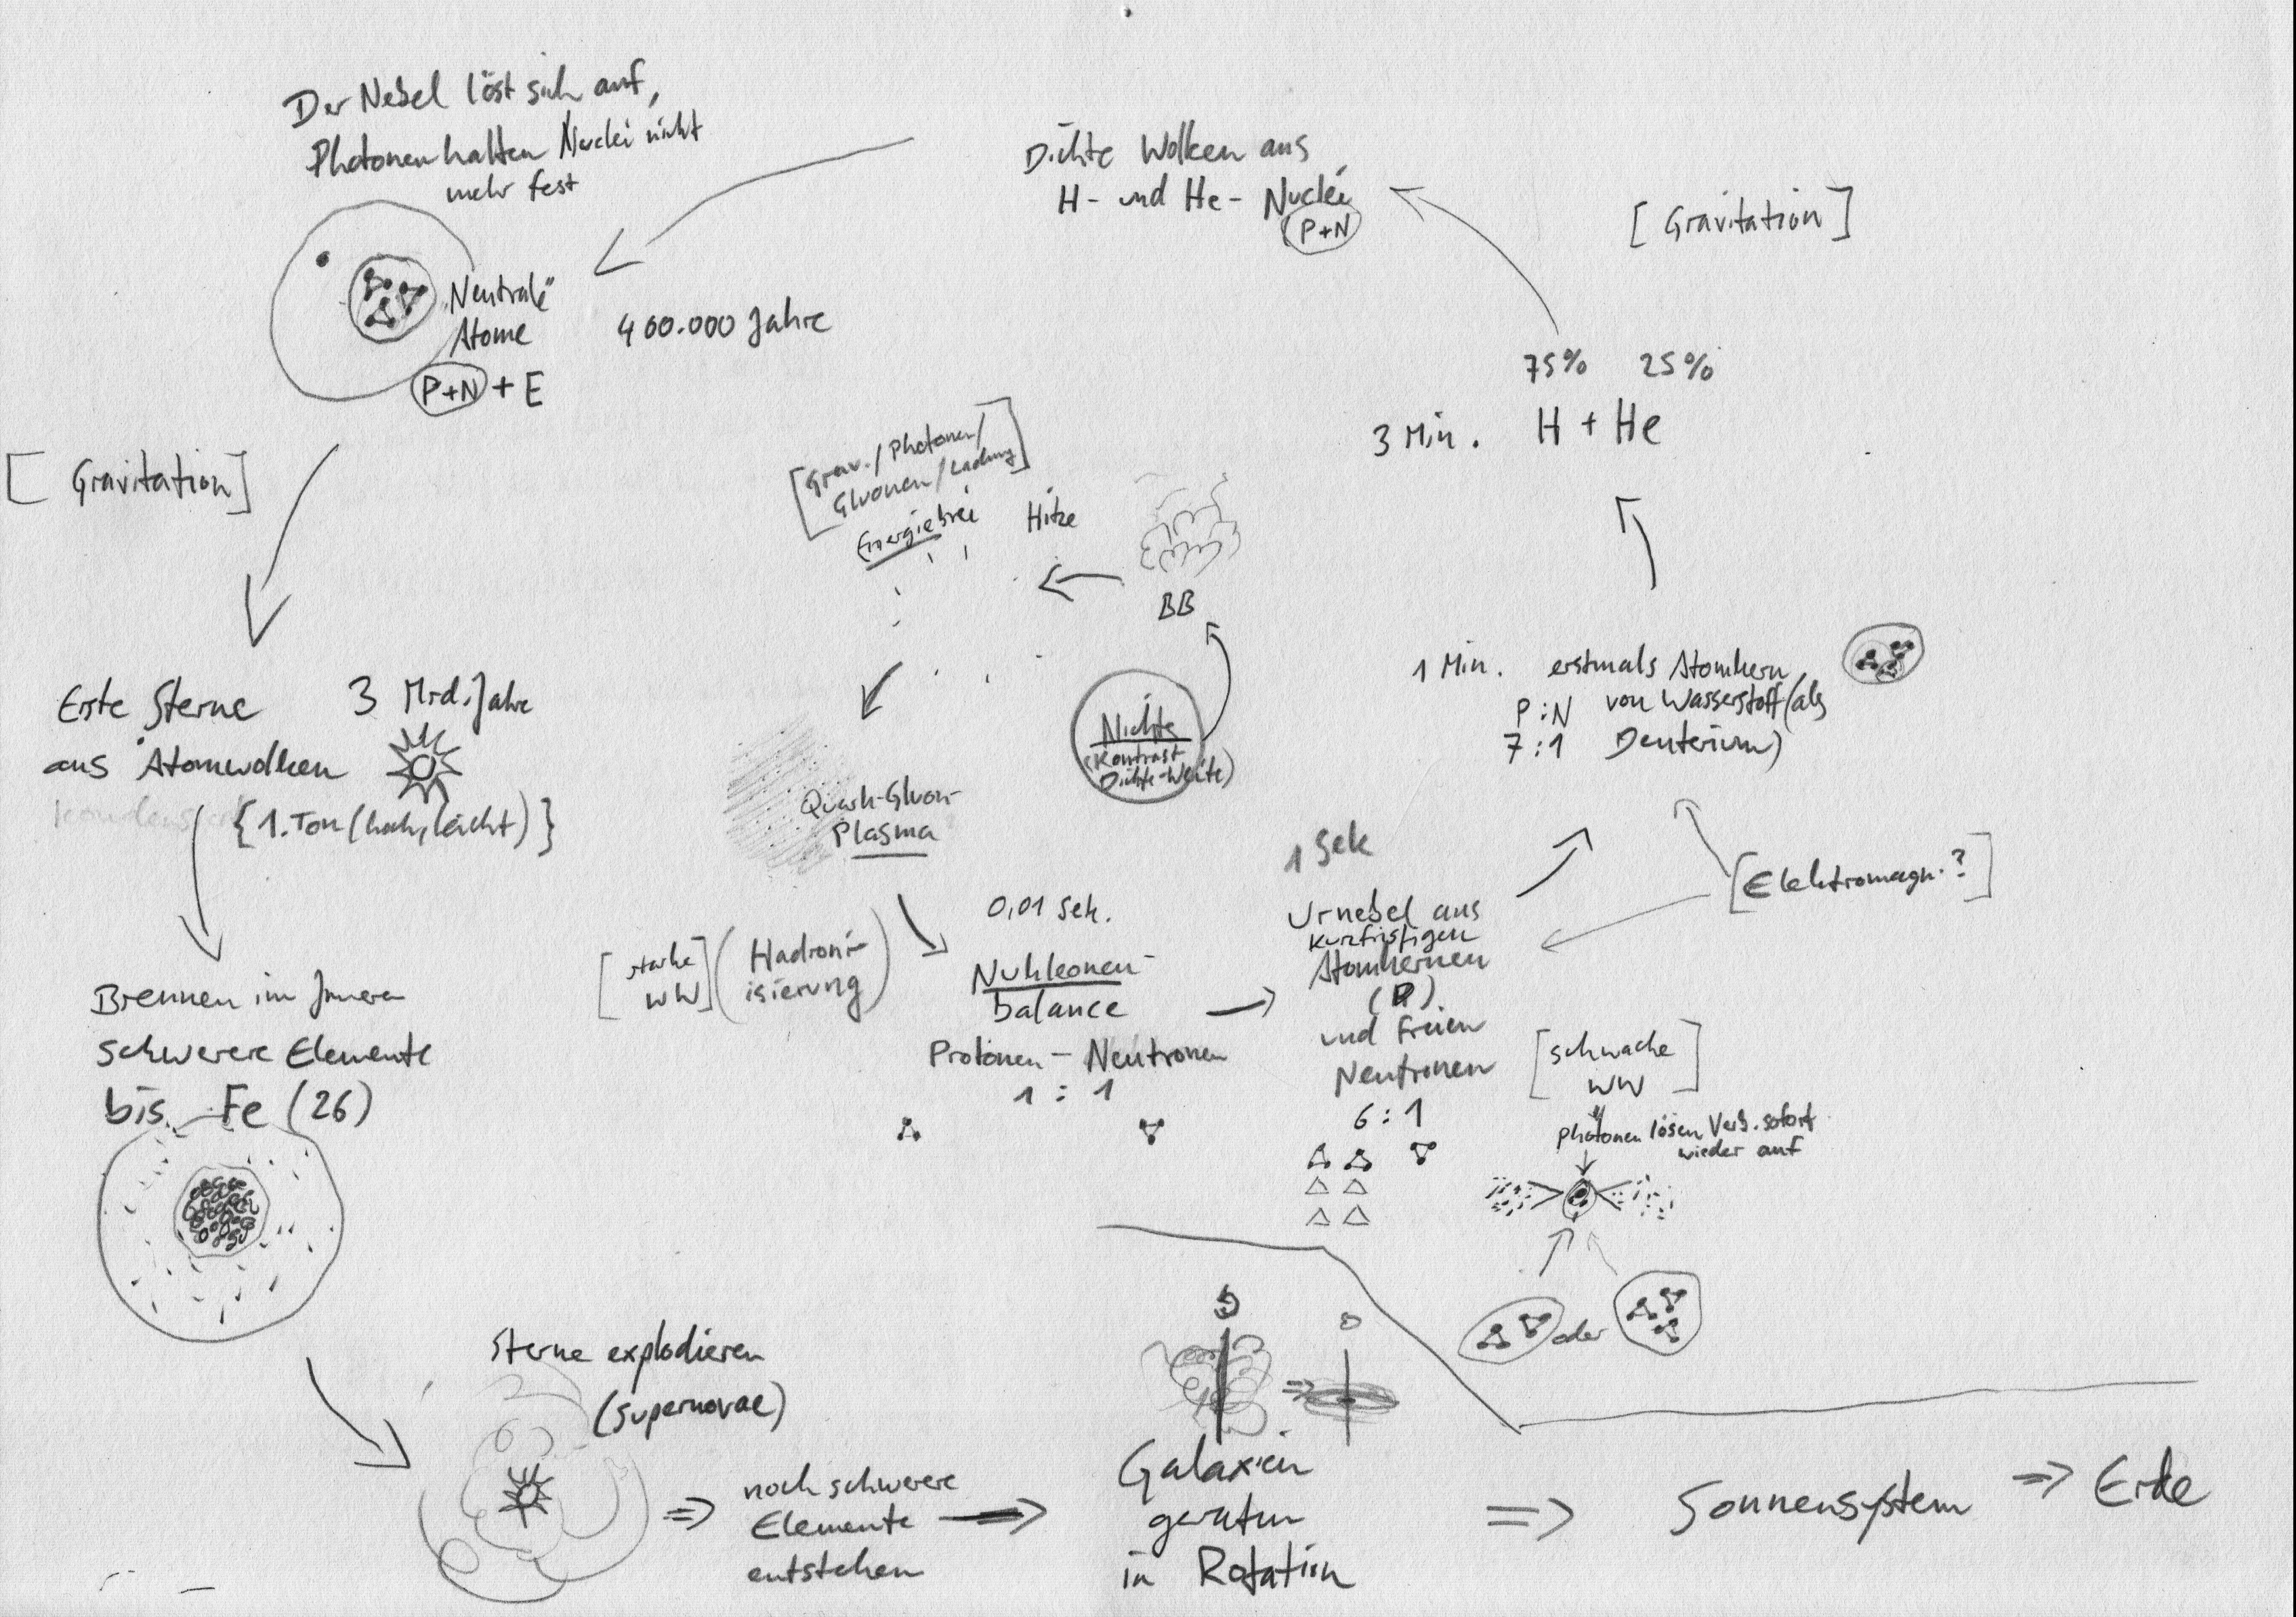 Der Nebel löst sich auf,
Photonen halten Nuclei nicht
mehr fest
Neutrale
Atome
P+N + E
400.000 Jahre
Dichte Wolken aus
H- und He- Nuclei
P+N
[ Gravitation ]
75% 25%
3 Min. H + He
[ Gravitation ]
[Grav./Photonen/
Gluonen/Ladung]
Energiebrei
Hitze
BB
Nichts
(Kontrast
Dichte-Weite)
1 Min. erstmals Atomkern
P:N von Wasserstoff (als
7:1 Deuterium)
Erste Sterne 3 Mrd. Jahre
aus Atomwolken
{1. Ton (hoch, leicht)}
Quark-Gluon-
Plasma
1 Sek
[Elektromagn.?]
0,01 Sek.
Urnebel aus
kurzfristigen
Atomkernen
(P)
und freien
Neutronen
6:1
[starke
WW]
(Hadroni-
isierung)
Nukleonen-
balance
Protonen - Neutronen
1 : 1
[schwache
WW]
Photonen lösen Verb. sofort
wieder auf
oder
Brennen im Innern
schwerere Elemente
bis Fe (26)
Sterne explodieren
(Supernovae)
noch schwerere
Elemente
entstehen
Galaxien
geraten
in Rotation
Sonnensystem
Erde